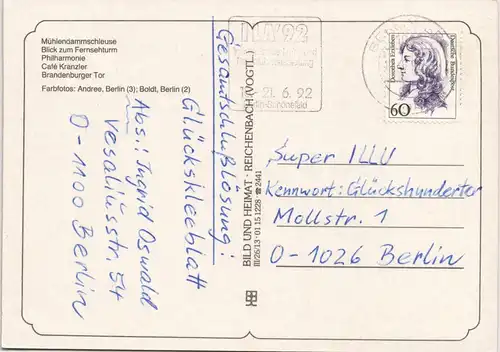 Mühlendammschleuse
Blick zum Fernsehturm
Philharmonie
Café Kranzler
Brandenburger Tor
Farbfotos: Andree, Berlin (3); Boldt, Berlin (2)
Gesamtschlußlösung:
Glückskleeblatt
Abs.: Ingrid Oswald
Vesaliusstr. 54
O-1100 Berlin
BILD UND HEIMAT · REICHENBACH (VOGTL.)
III/26/13 · 01 15 1228 · ☎ 2441
ILA'92
21. 6. 92
Dorothea Erxleben
Deutsche Bundespost
60
Super ILLU
Kennwort: Glückshunderter
Mollstr. 1
O-1026 Berlin